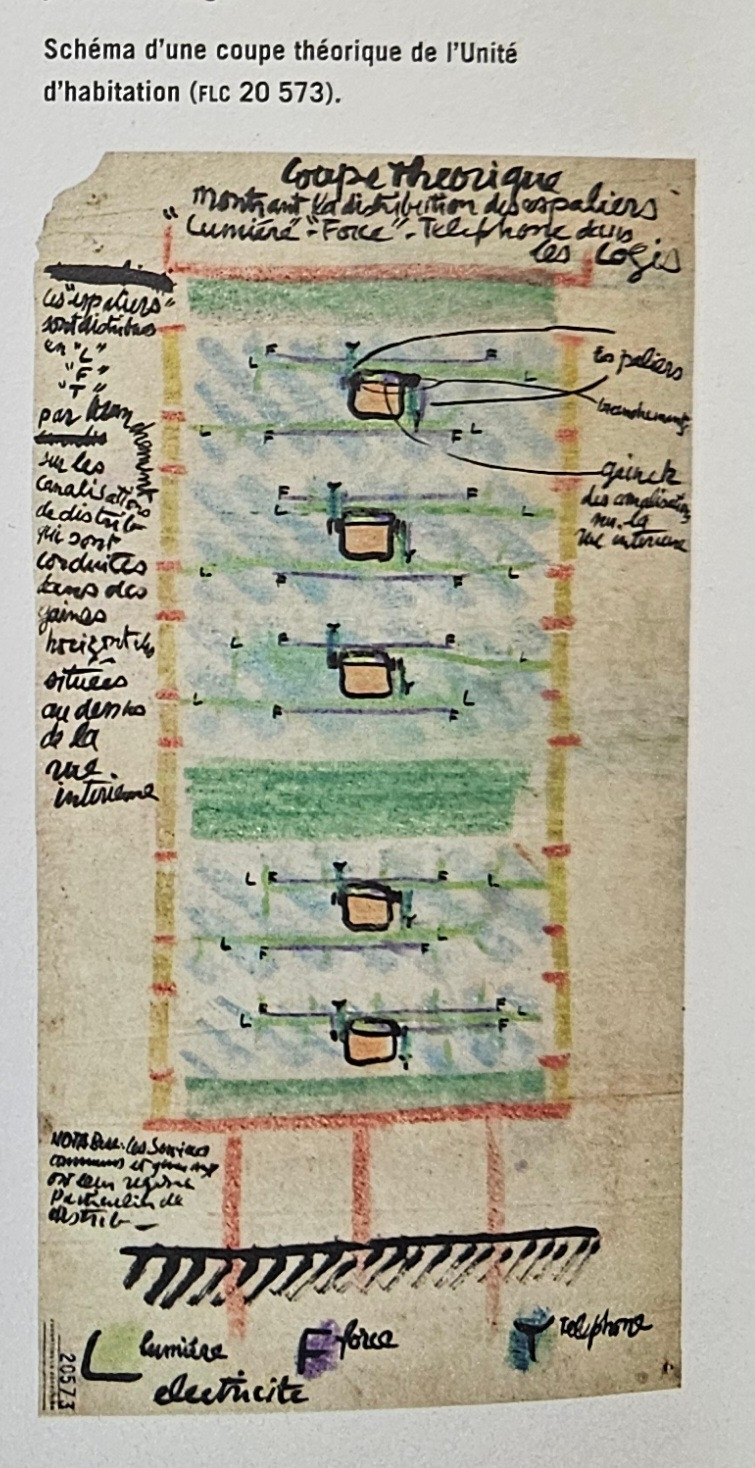 Schéma d'une coupe théorique de l'Unité
d'habitation (FLC 20 573).
Coupe theorique
montrant la distribution des espaliers
"Lumière" - "Force" - Telephone dans
les Logis
Les "espaliers"
sont distribués
en "L"
"F"
"T"
par branchement
sur les
canalisations
de distrib
qui sont
conduites
dans des
gaines
horizontales
situées
au dessus
de la
rue
interieure
Espaliers
branchements
gaines
des canalisations
sur la
rue interieure
F T F
L L
L L
F F
F T F
L L
L L
F T F
F T F
L L
L L
F T F
L F T F L
T
L L
F F
F T F
L L
F
T
NOTA Bene. Les Services
communs et generaux
ont leur regime
Particulier de
distrib
L lumière F force T telephone
electricite
20573